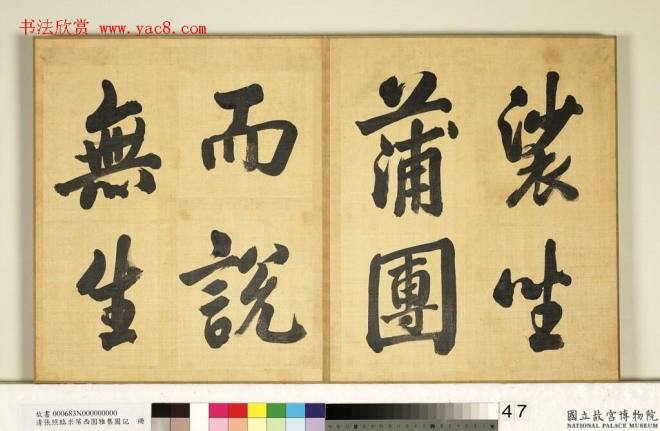 书法欣赏 www.yac8.com
裟坐
蒲團
而說
無生
故書 000683N000000000
清張照臨米芾西園雅集圖記 冊
47
國立故宮博物院
NATIONAL PALACE MUSEUM